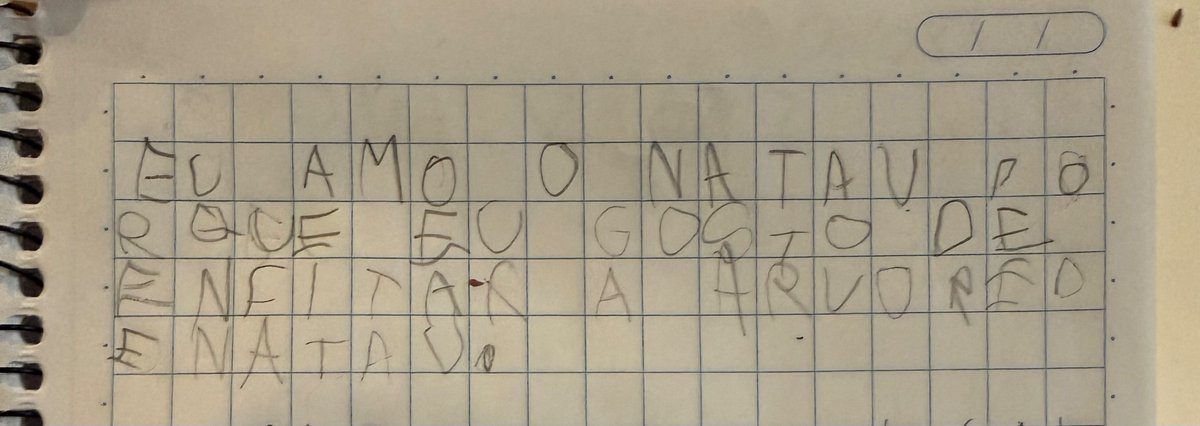 EU AMO O NATAU PO
RQUE EU GOSTO DE
ENFITAR A ARVORE D
E NATAU.